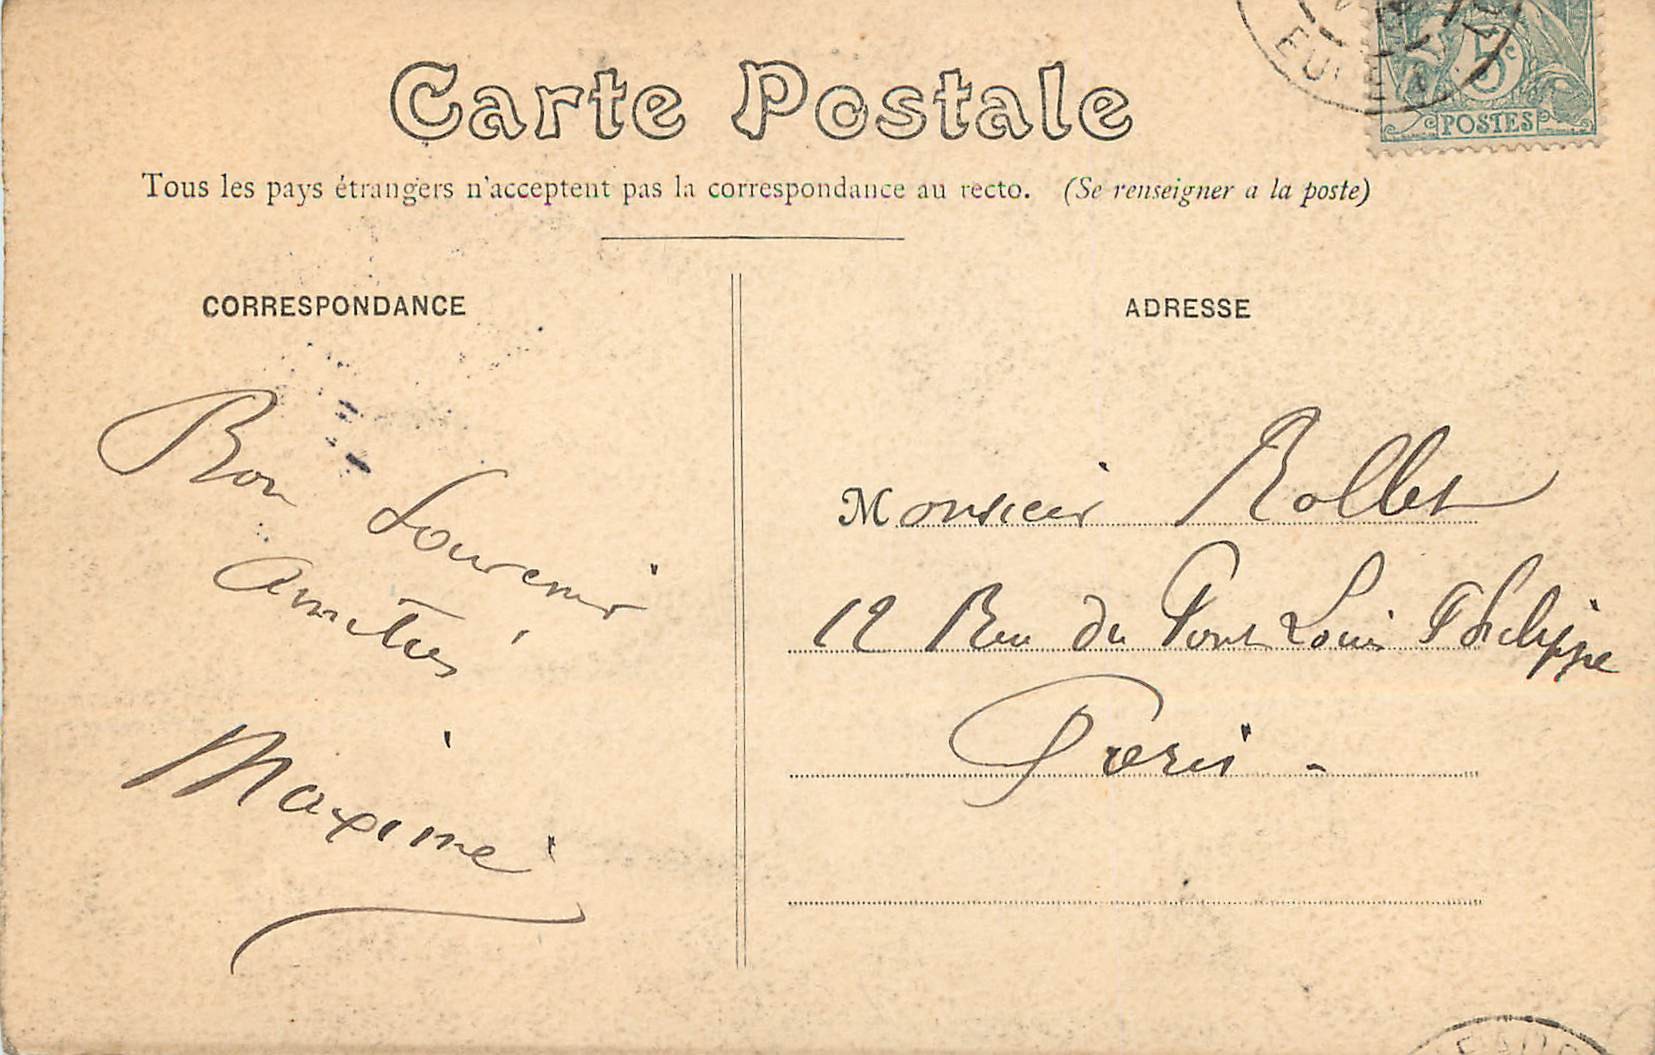 Carte Postale
5c
POSTES
Tous les pays étrangers n'acceptent pas la correspondance au recto. (Se renseigner a la poste)
CORRESPONDANCE
Bon Souvenir
Amitiés
Maxime
ADRESSE
Monsieur Rollet
12 Rue du Pont Louis Philippe
Paris -